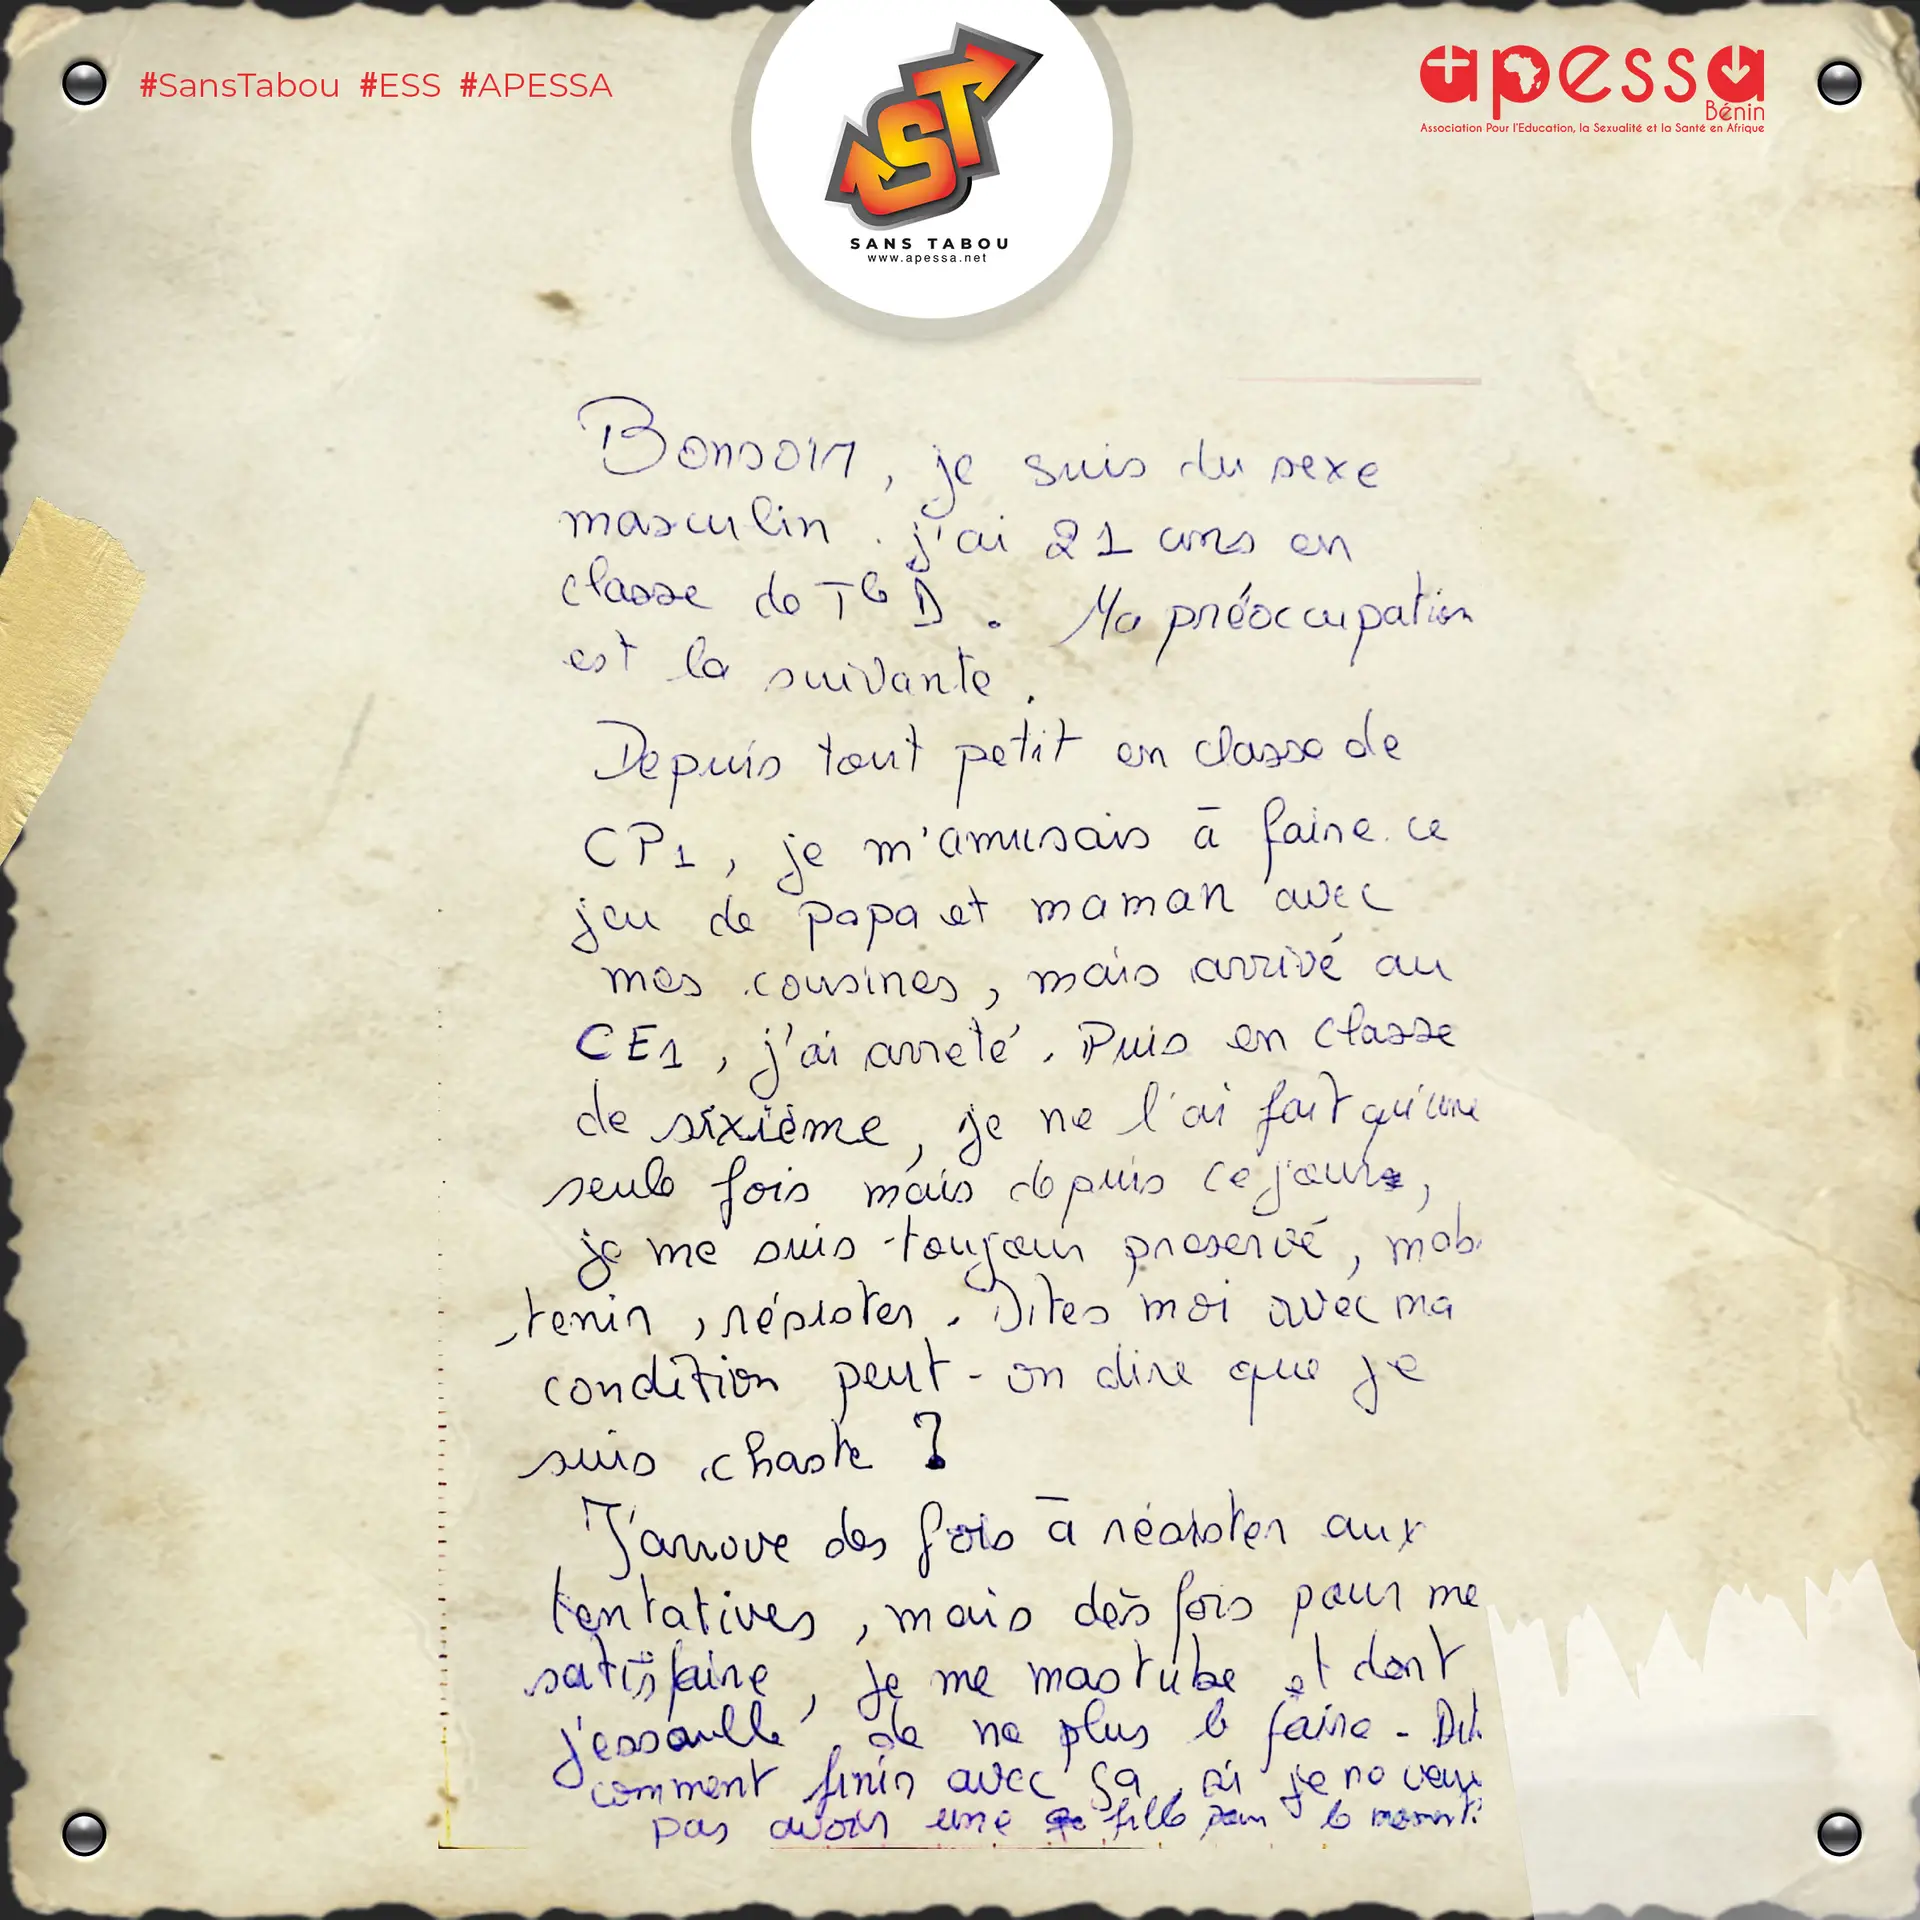 #SansTabou #ESS #APESSA
ST
SANS TABOU
www.apessa.net
apessa
Bénin
Association Pour l'Education, la Sexualité et la Santé en Afrique
Bonsoir, je suis du sexe
masculin. j'ai 21 ans en
classe de Tle D. Ma préoccupation
est la suivante.
Depuis tout petit en classe de
CP1, je m'amusais à faire ce
jeu de papa et maman avec
mes cousines, mais arrivé au
CE1, j'ai arreté. Puis en classe
de sixième, je ne l'ai fait qu'une
seule fois mais depuis ce jour,
je me suis toujour preservé, m'abs
tenir, résister. Dites moi avec ma
condition peut-on dire que je
suis chaste ?
J'arrove des fois à résister aux
tentatives, mais dès fois pour me
satisfaire, je me mastube et dont
de ne plus le faire -
comment finir avec ça, si je ne veux
pas avoir une fille pour le moment?